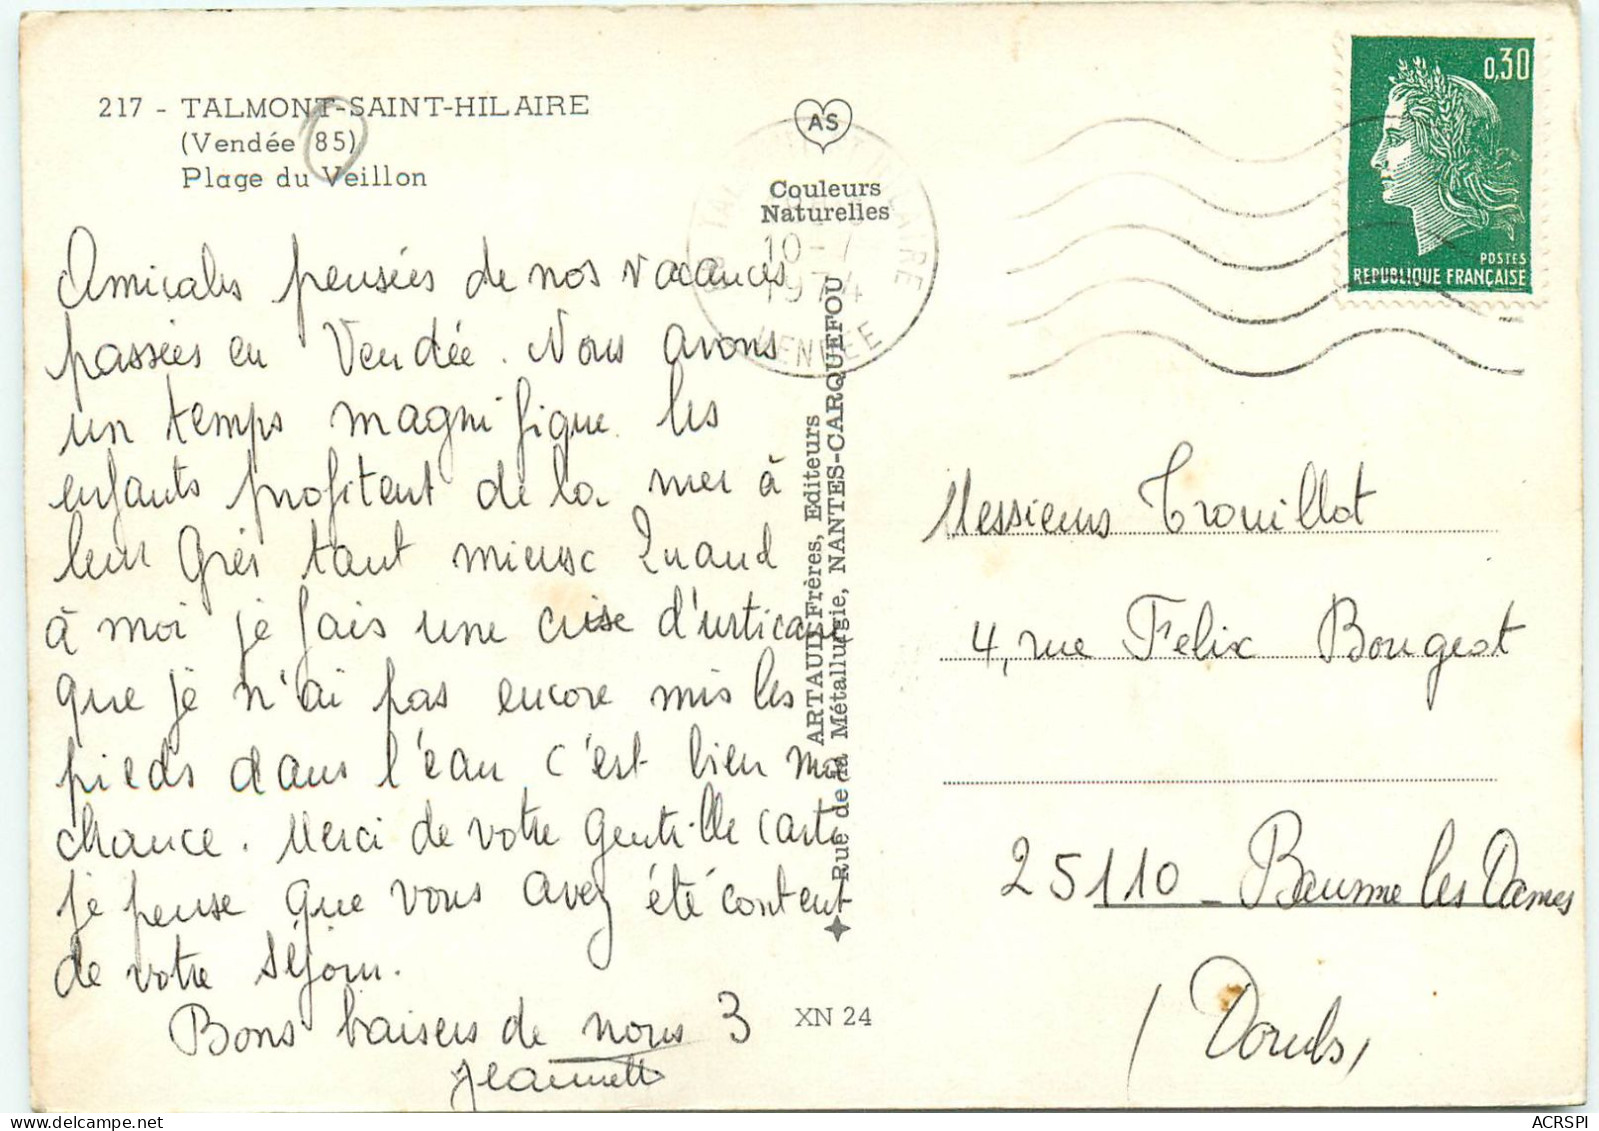 217 - TALMONT-SAINT-HILAIRE
(Vendée 85)
Plage du Veillon
Amicales pensées de nos vacances
passées en Vendée. Nous avons
un temps magnifique les
enfants profitent de la mer à
leur Grés tant mieux Quand
à moi je fais une crise d'urticaire
que je n'ai pas encore mis les
pieds dans l'eau c'est bien ma
chance. Merci de votre gentille carte
je pense que vous avez été content
de votre séjour.
Bons baisers de nous 3
Jeannette
AS
Couleurs
Naturelles
10-7
1974
VENDEE
ARTAUD Frères, Editeurs
Rue de la Métallurgie, NANTES-CARQUEFOU
XN 24
0,30
POSTES
REPUBLIQUE FRANÇAISE
Messieurs Trouillot
4, rue Felix Bougeot
25110 - Baume les Dames
(Doubs)
delcampe.net
ACRSPI